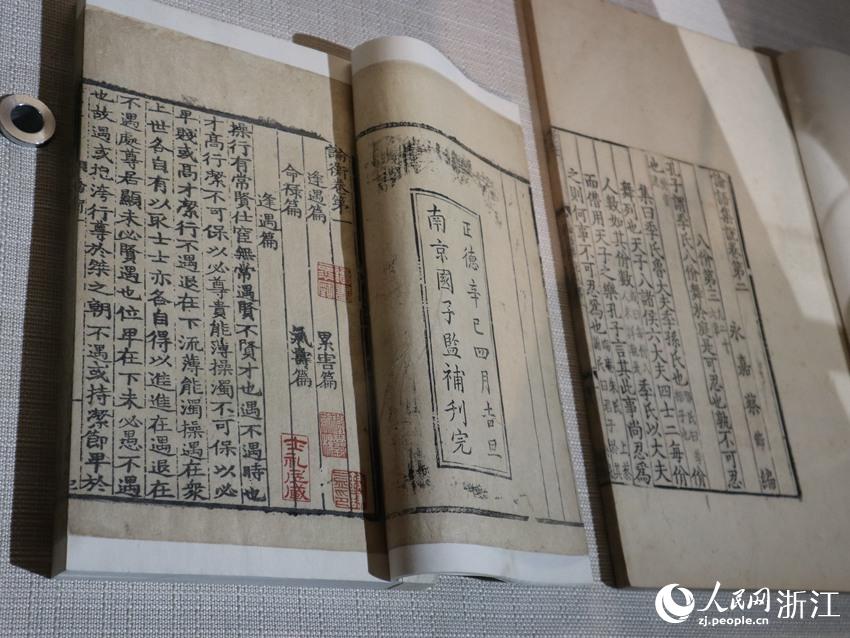 論語集說卷第二 永嘉蔡節編
八佾第三
孔子謂季氏八佾舞於庭是可忍也孰不可忍
也
集曰季氏魯大夫季孫氏也
舞列也天子八諸侯六大夫四士二每佾
人數如其佾數 季氏以大夫
而僭用天子之樂孔子言其此事尚忍為
之則何事不可忍為也
正德辛巳四月吉旦
南京國子監補刊完
論衡卷第一
逢遇篇 累害篇
命祿篇 氣壽篇
逢遇篇
操行有常賢仕宦無常遇賢不賢才也遇不遇時也
才高行潔不可保以必尊貴能薄操濁不可保以必
卑賤或高才潔行不遇退在下流薄能濁操遇在衆
上世各自有以取士士亦各自得以進進在遇退在
不遇處尊居顯未必賢遇也位卑在下未必愚不遇
也故遇或抱洿行尊於桀之朝不遇或持潔節卑於
士礼居藏
人民网 浙江
zj.people.cn